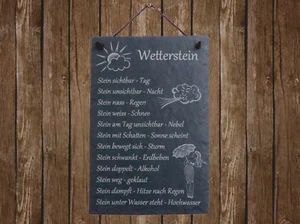 Wetterstein
Stein sichtbar - Tag
Stein unsichtbar - Nacht
Stein nass - Regen
Stein weiss - Schnee
Stein am Tag unsichtbar - Nebel
Stein mit Schatten - Sonne scheint
Stein bewegt sich - Sturm
Stein schwankt - Erdbeben
Stein doppelt - Alkohol
Stein weg - geklaut
Stein dampft - Hitze nach Regen
Stein unter Wasser steht - Hochwasser